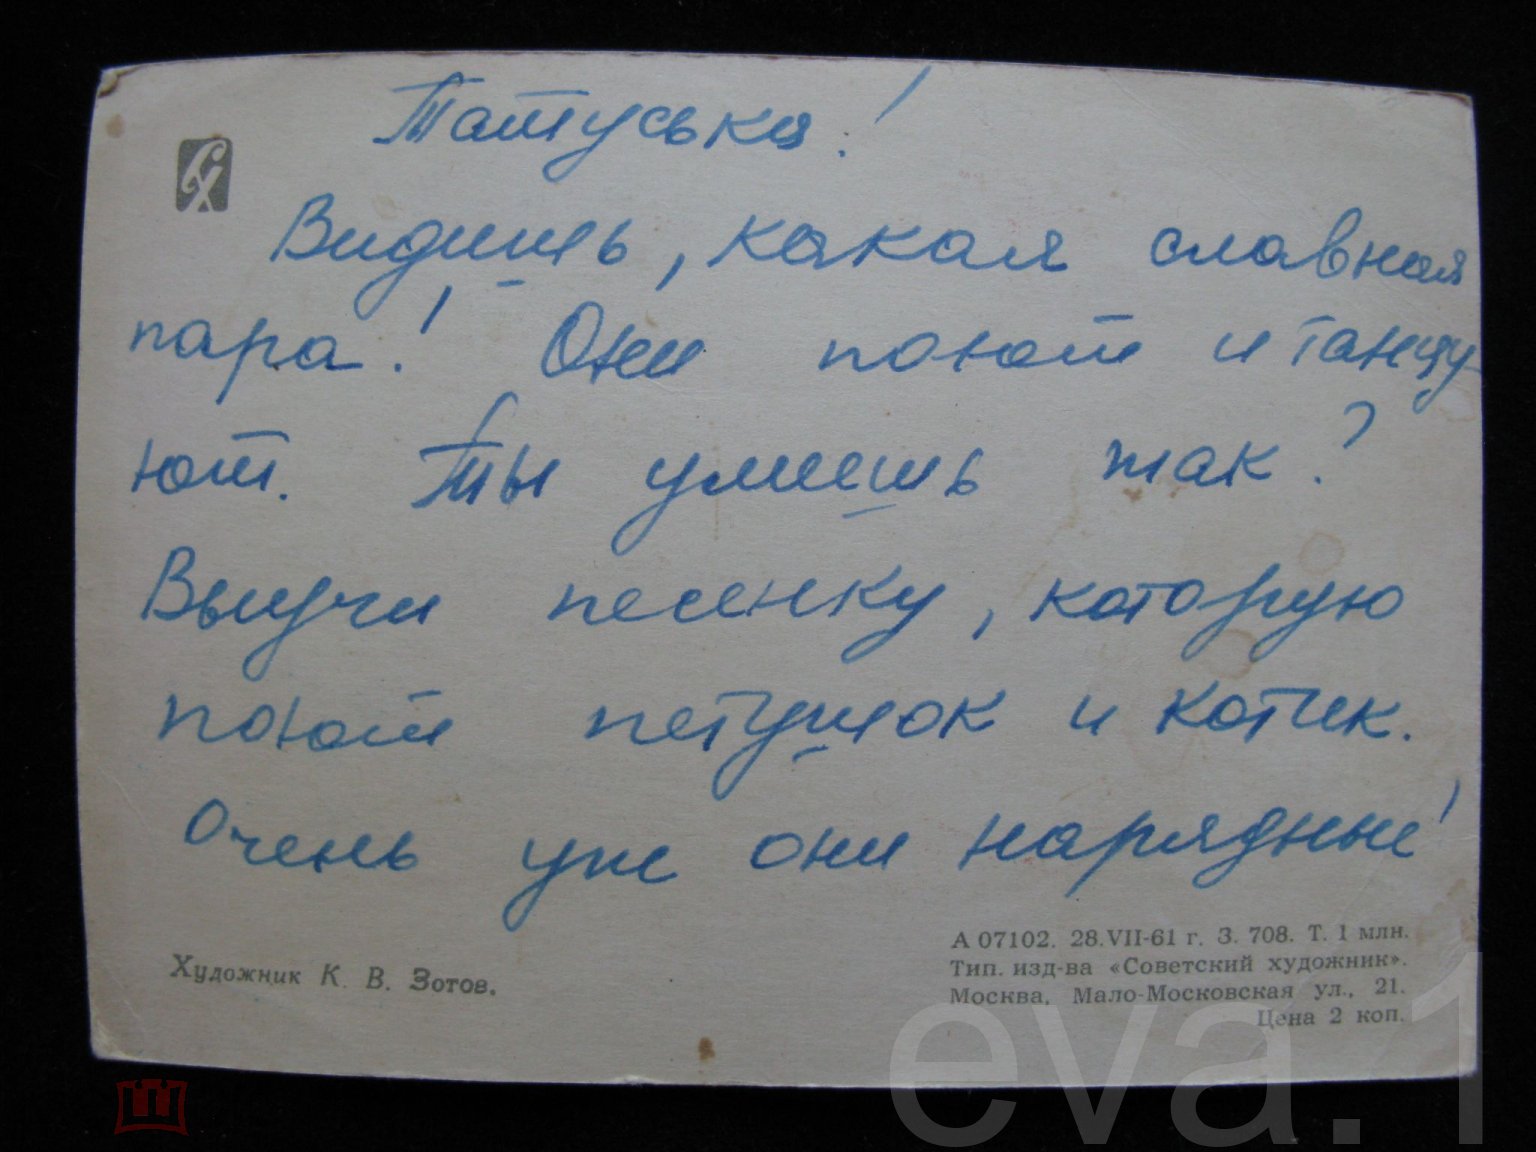 Татуська!
Видишь, какая славная
пара! Они поют и танцу-
ют. Ты умеешь так?
Выучи песенку, которую
поют петушок и котик.
Очень уж они нарядные!
Художник К. В. Зотов.
А 07102. 28.VII-61 г. З. 708. Т. 1 млн.
Тип. изд-ва «Советский художник».
Москва, Мало-Московская ул., 21.
Цена 2 коп.
eva.1